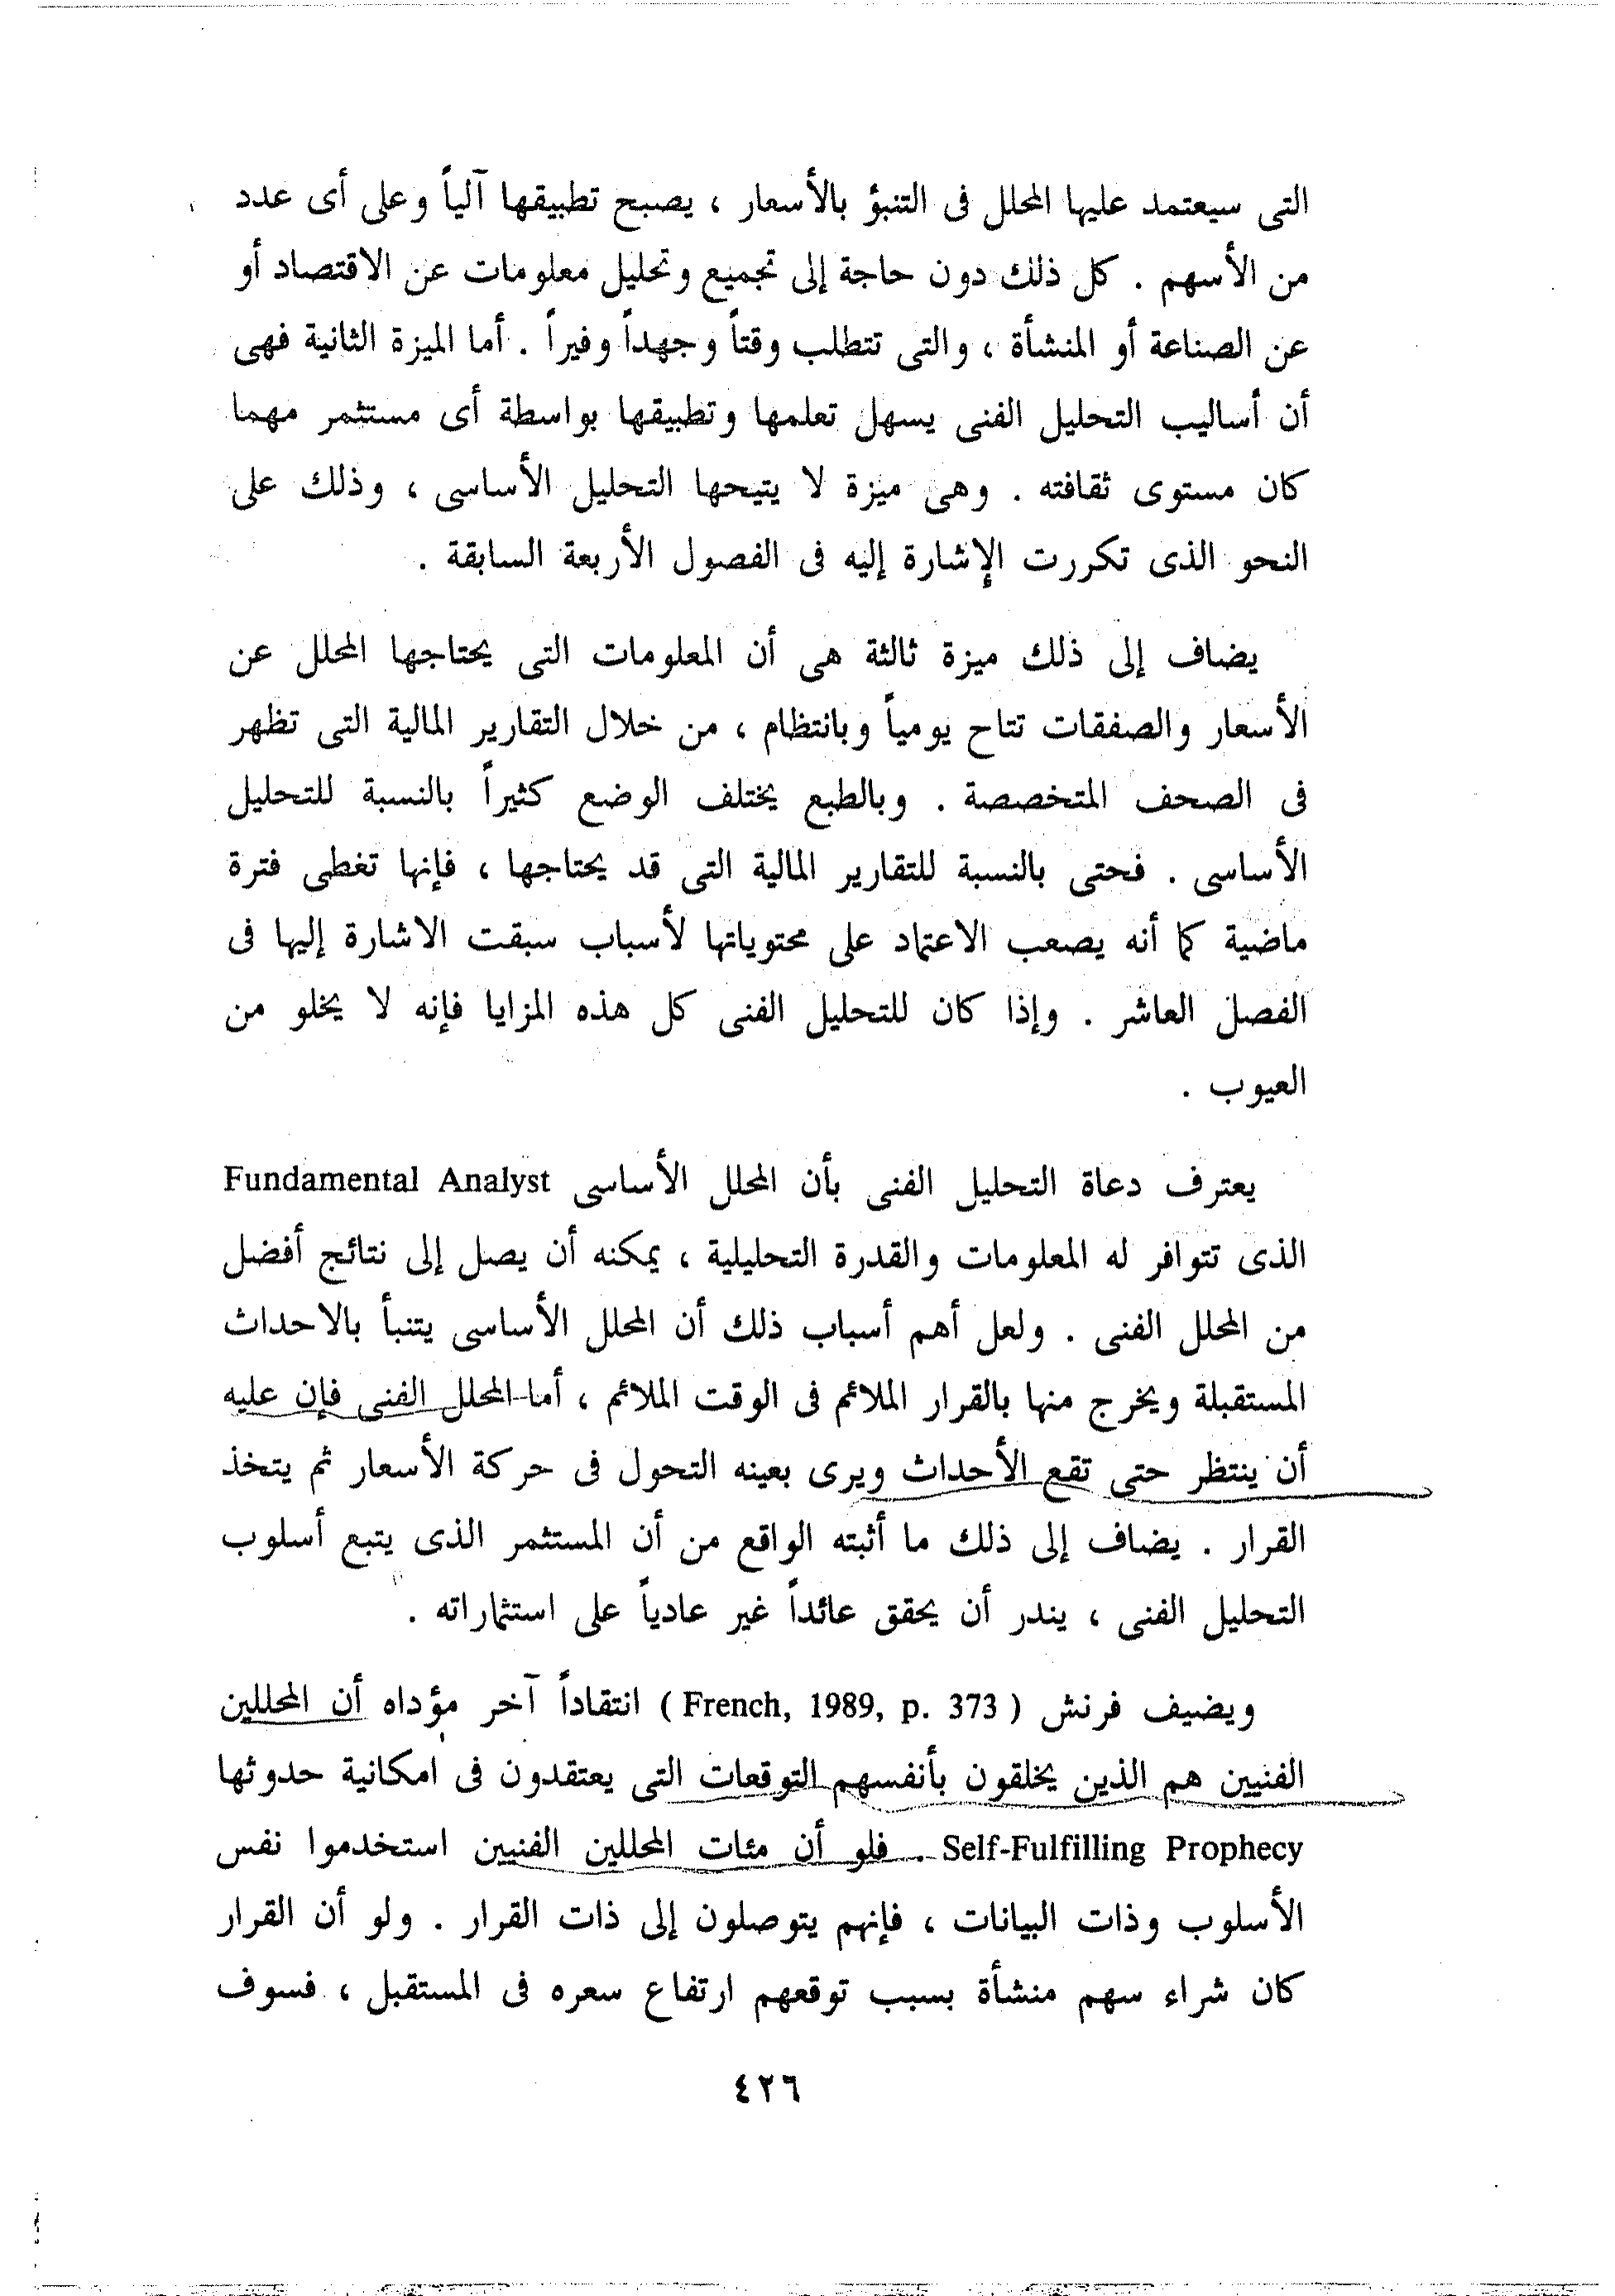 التى سيعتمد عليها المحلل فى التنبؤ بالأسعار ، يصبح تطبيقها آلياً وعلى أى عدد
من الأسهم . كل ذلك دون حاجة إلى تجميع وتحليل معلومات عن الاقتصاد أو
عن الصناعة أو المنشأة ، والتى تتطلب وقتاً وجهداً وفيراً . أما الميزة الثانية فهى
أن أساليب التحليل الفنى يسهل تعلمها وتطبيقها بواسطة أى مستثمر مهما
كان مستوى ثقافته . وهى ميزة لا يتيحها التحليل الأساسى ، وذلك على
النحو الذى تكررت الإشارة إليه فى الفصول الأربعة السابقة .
يضاف إلى ذلك ميزة ثالثة هى أن المعلومات التى يحتاجها المحلل عن
الأسعار والصفقات تتاح يومياً وبانتظام ، من خلال التقارير المالية التى تظهر
فى الصحف المتخصصة . وبالطبع يختلف الوضع كثيراً بالنسبة للتحليل
الأساسى . فحتى بالنسبة للتقارير المالية التى قد يحتاجها ، فإنها تغطى فترة
ماضية كما أنه يصعب الاعتماد على محتوياتها لأسباب سبقت الاشارة إليها فى
الفصل العاشر . وإذا كان للتحليل الفنى كل هذه المزايا فإنه لا يخلو من
العيوب .
يعترف دعاة التحليل الفنى بأن المحلل الأساسى Fundamental Analyst
الذى تتوافر له المعلومات والقدرة التحليلية ، يمكنه أن يصل إلى نتائج أفضل
من المحلل الفنى . ولعل أهم أسباب ذلك أن المحلل الأساسى يتنبأ بالاحداث
المستقبلة ويخرج منها بالقرار الملائم فى الوقت الملائم ، أما المحلل الفنى فإن عليه
أن ينتظر حتى تقع الأحداث ويرى بعينه التحول فى حركة الأسعار ثم يتخذ
القرار . يضاف إلى ذلك ما أثبته الواقع من أن المستثمر الذى يتبع أسلوب
التحليل الفنى ، يندر أن يحقق عائداً غير عادياً على استثماراته .
ويضيف فرنش ( French, 1989, p. 373 ) انتقاداً آخر مؤداه أن المحللين
الفنيين هم الذين يخلقون بأنفسهم التوقعات التى يعتقدون فى امكانية حدوثها
Self-Fulfilling Prophecy . فلو أن مئات المحللين الفنيين استخدموا نفس
الأسلوب وذات البيانات ، فإنهم يتوصلون إلى ذات القرار . ولو أن القرار
كان شراء سهم منشأة بسبب توقعهم ارتفاع سعره فى المستقبل ، فسوف
٤٢٦